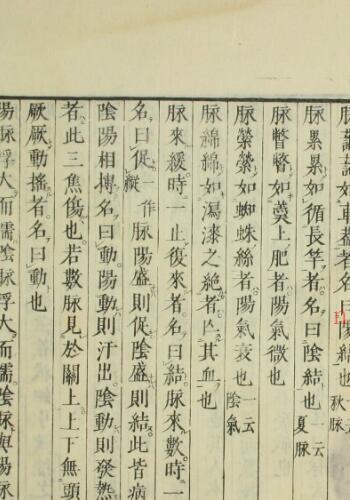 脉藹藹如車蓋者名曰陽結也一云秋脉
脉累累如循長竿者名曰陰結也一云夏脉
脉瞥瞥如羹上肥者陽氣微也
脉縈縈如蜘蛛絲者陽氣衰也一云陰氣
脉綿綿如瀉漆之絶者亡其血也
脉來緩時一止復來者名曰結脉來數時一
名曰促一作縱脉陽盛則促陰盛則結此皆病
陰陽相搏名曰動陽動則汗出陰動則發熱
者此三焦傷也若數脉見於關上上下無頭
厥厥動搖者名曰動也
陽脉浮大而濡陰脉浮大而濡陰脉與陽脉